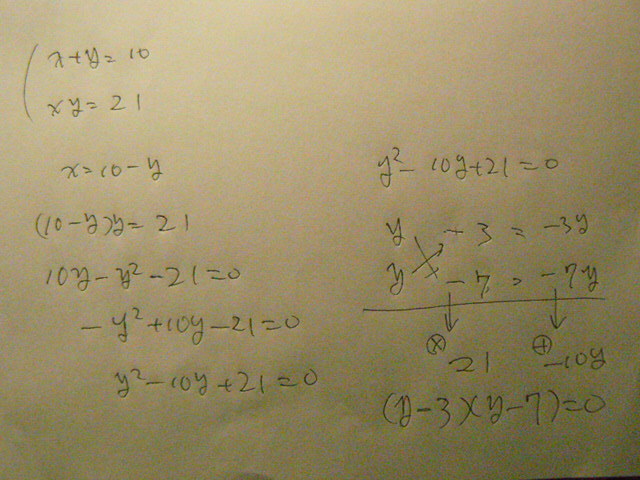 x+y=10
xy=21
x=10-y
(10-y)y=21
10y-y²-21=0
-y²+10y-21=0
y²-10y+21=0
y²-10y+21=0
y -3 = -3y
y -7 = -7y
⊗ 21 ⊕ -10y
(y-3)(y-7)=0